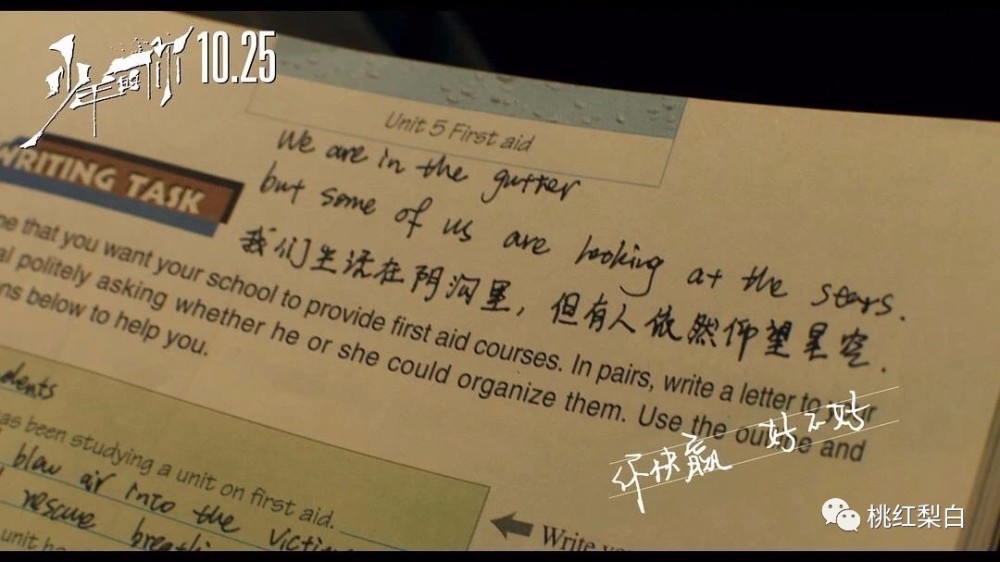 少年的你 10.25
Unit 5 First aid
We are in the gutter
but some of us are looking at the stars.
我们生活在阴沟里，但有人依然仰望星空.
WRITING TASK
ne that you want your school to provide first aid courses. In pairs, write a letter to your
al politely asking whether he or she could organize them. Use the outline and
ns below to help you.
dents
as been studying a unit on first aid.
blow air into the victim
rescue breathi
unit ha
Write yo
你快赢 好不好
桃红梨白